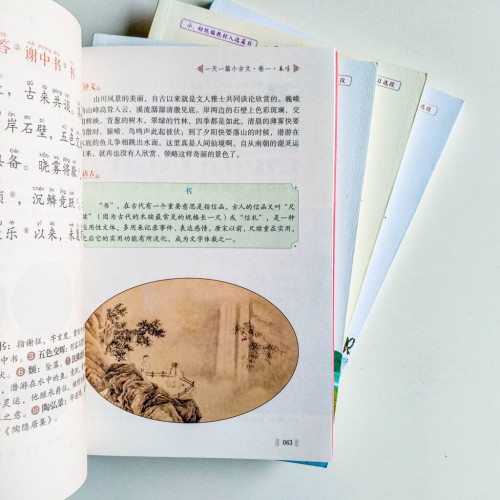 答 谢中书 书
，古来共谈。
岸石壁，五色交
具备。晓雾将歇
，沉鳞竞跃
乐 以来，未
书：指谢征，字玄度，曾
中书。③五色交辉：
坠落。
，潜游在水中的鱼。
灵运，他继承爵位，
之意。⑩陶弘景：
《陶隐居集》
一天一篇小古文·卷一·
译文
山川风景的美丽，自古以来就是文人雅士共同谈论欣赏的。巍峨
山峰高耸入云，溪流潺潺清澈见底。岸两边的石壁上色彩斑斓，交
辉映。青葱的树木，翠绿的竹林，四季都是如此。清晨的薄雾快要
散时，猿啼、鸟鸣声此起彼伏；到了夕阳快要落山的时候，潜游在
底的鱼儿争相跳出水面。这里真是人间仙境啊。自从南朝的谢灵运
来，就再也没有人欣赏、领略这样奇丽的景色了。
书
“书”，在古代有一个重要意思是指信函。古人的信函又叫“尺
”（因为古代的木牍最常见的规格长一尺）或“信札”，是一种
应用性文体，多用来记录事件、表达感情。唐宋以前，尺牍重在实用，
后它的实用功能有所淡化，成为文学体裁之一。
063
小、初统编教材入选篇目
选段
目选段
选段